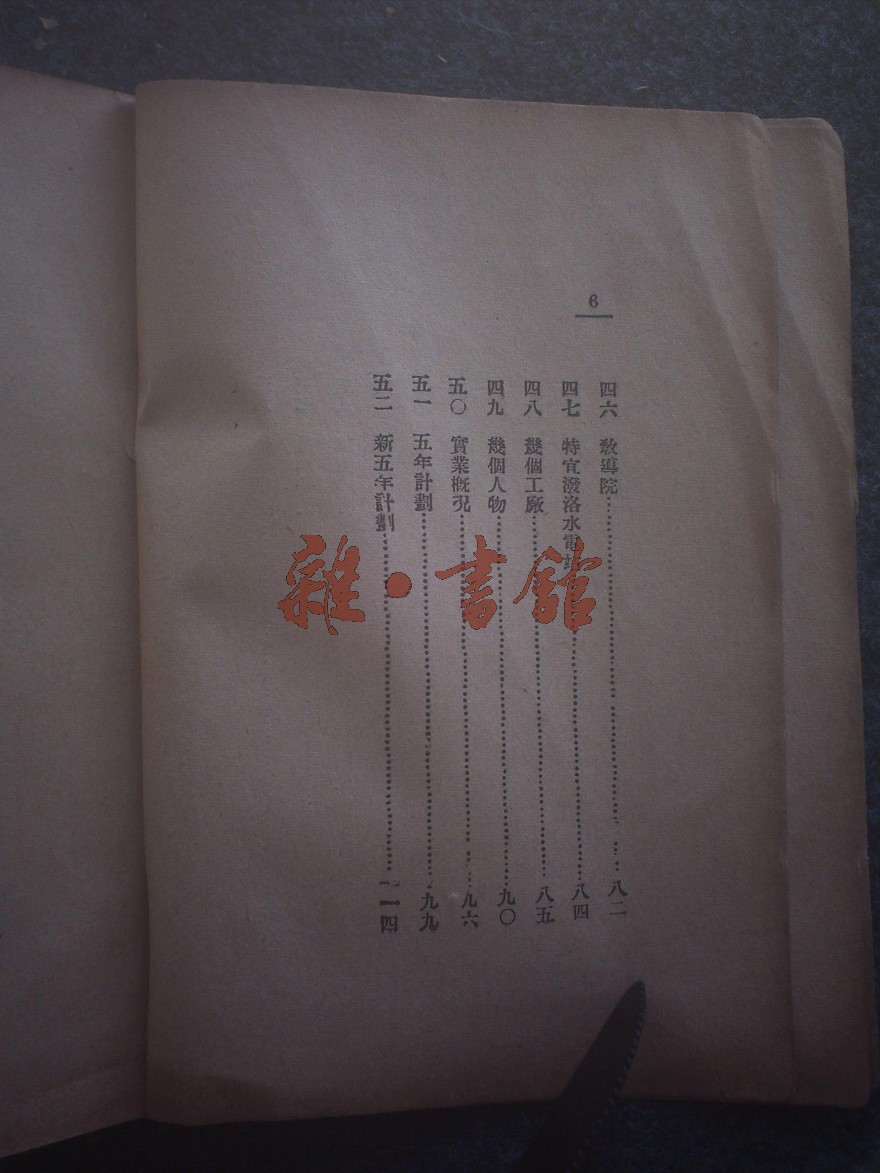 6
四六 教導院 八二
四七 特宜潑洛水電站 八四
四八 幾個工廠 八五
四九 幾個人物 九〇
五〇 實業概況 九六
五一 五年計劃 九九
五二 新五年計劃 一一四
雜·書館